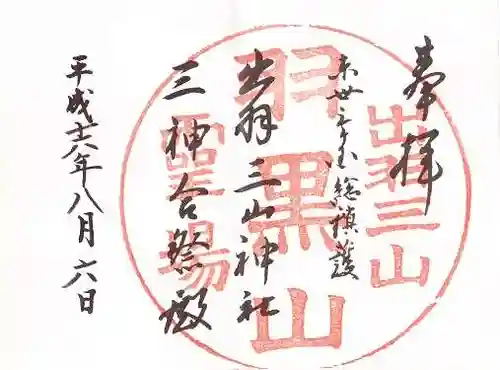 奉拝
総鎮護
出羽三山神社
三神合祭殿
平成十六年八月六日
出羽三山
羽黒山
霊場